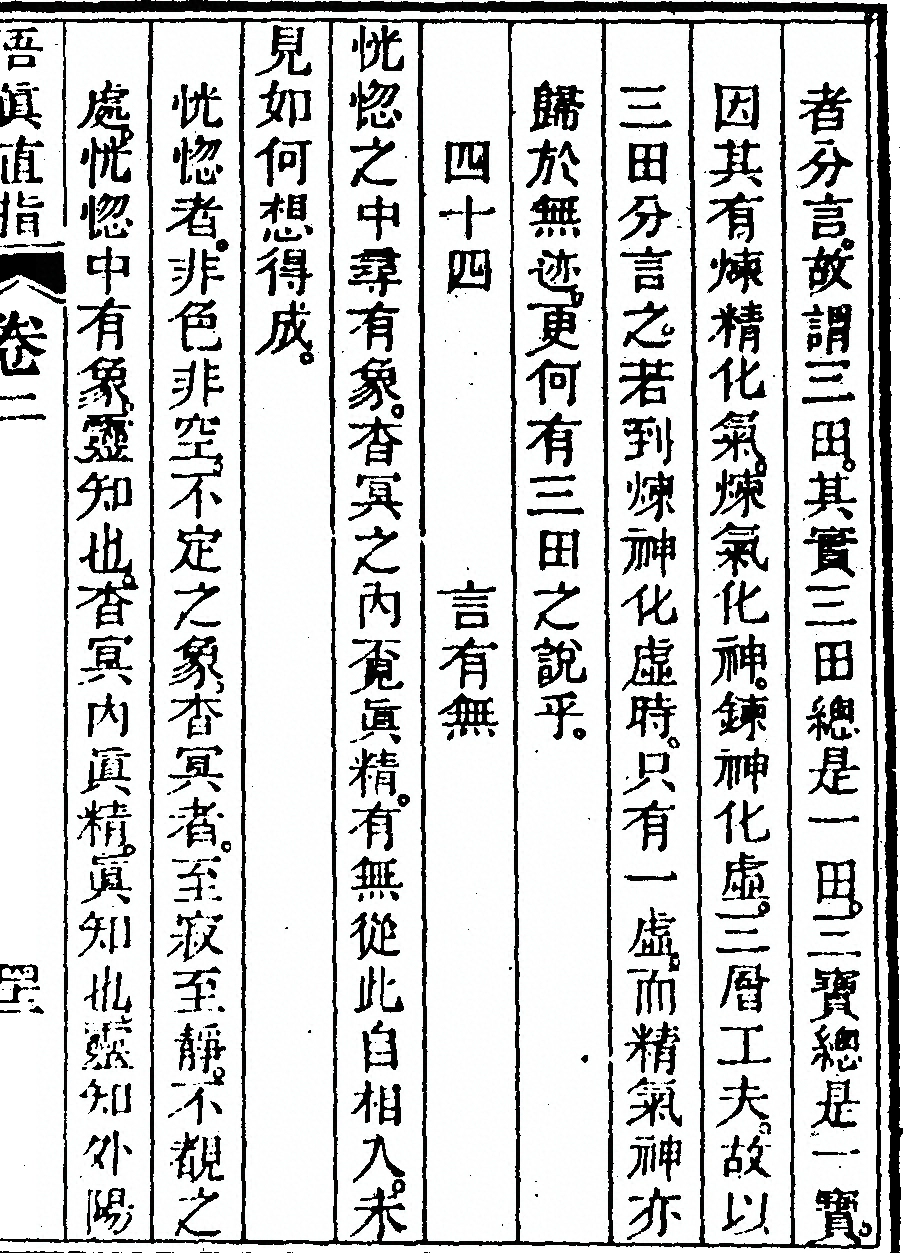 者分言。故謂三田。其實三田總是一田。三寶總是一寶。
因其有煉精化氣。煉氣化神。鍊神化虛。三層工夫。故以
三田分言之。若到煉神化虛時。只有一虛。而精氣神亦
歸於無迹。更何有三田之說乎。
四十四　言有無
恍惚之中尋有象。杳冥之內覓眞精。有無從此自相入。未
見如何想得成。
恍惚者。非色非空。不定之象。杳冥者。至寂至靜。不覩之
處。恍惚中有象。靈知也。杳冥內眞精。眞知也。靈知外陽
悟眞直指　卷二